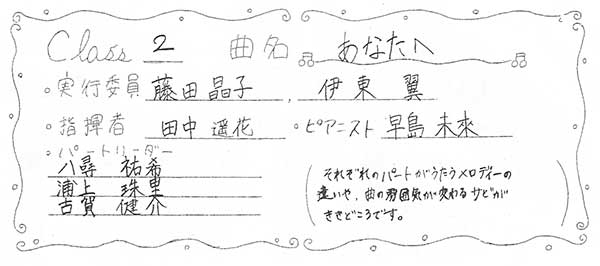 Class 2 曲名 あなたへ
・実行委員 藤田 晶子 , 伊東 翼
・指揮者 田中 遥花 ・ピアニスト 早島 未來
・パートリーダー
八尋 祐希
浦上 珠里
古賀 健介
(それぞれのパートがうたうメロディーの
違いや、曲の雰囲気が変わるサビが
ききどころです。)